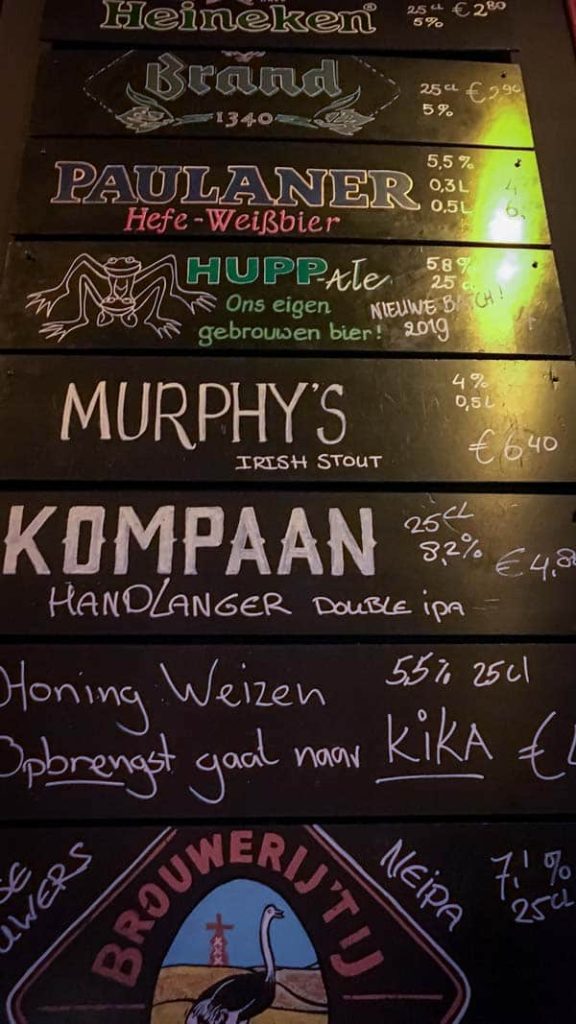 Heineken® 25cl €2⁸⁰
5%
Brand 25cl €2⁹⁰
1340 5%
PAULANER 5,5%
Hefe-Weißbier 0,3L 4,
0,5L 6,
HUPP-Ale 5,8%
Ons eigen 25
gebrouwen bier! NIEUWE BATCH!
2019
MURPHY'S 4%
0,5L
IRISH STOUT €6⁴⁰
KOMPAAN 25CL
8,2% €4,8
HANDLANGER DOUBLE IPA
Honing Weizen 5,5% 25cl
Opbrengst gaat naar KiKA €
BROUWERIJ 'T IJ
XXX
UWERS NEIPA 7,1%
25cl